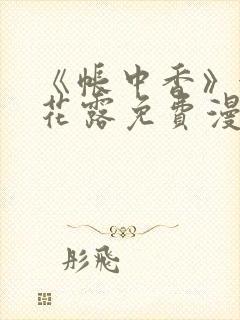 《帐中香》
花露免费漫
彤飛